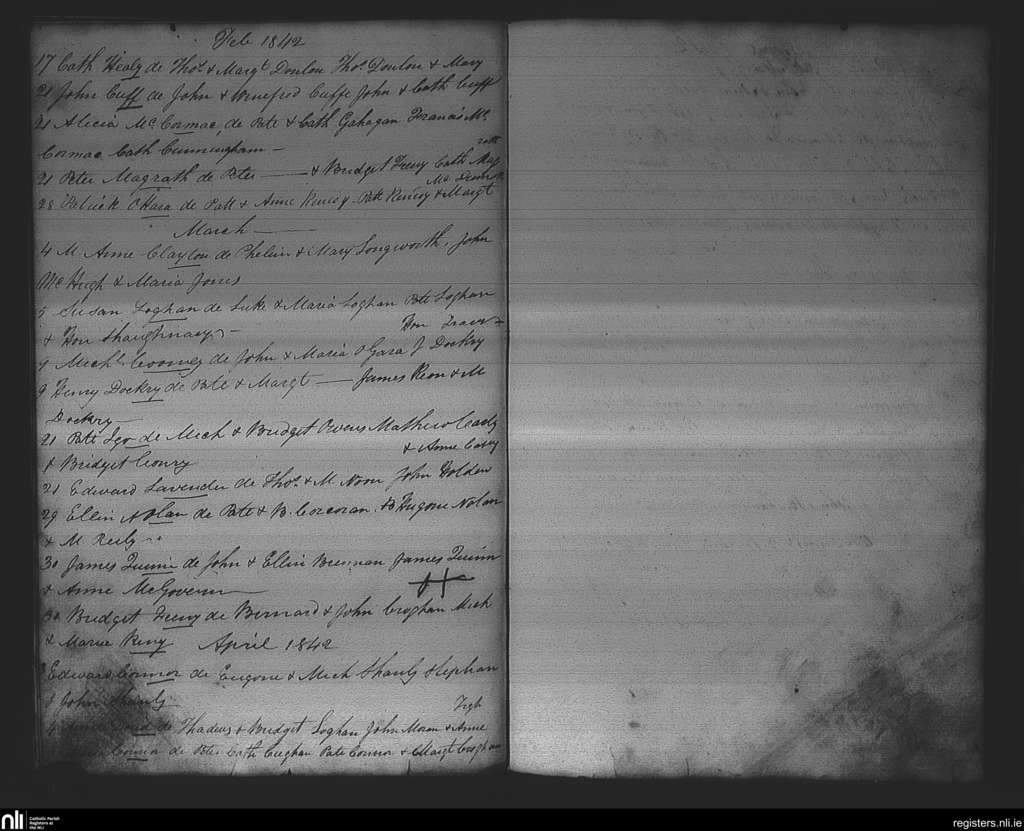 Feb 1842
17 Cath Healy de Thos & Margt Donlon Thos Donlon & Mary
21 John Cuff de John & Winefred Cuffe John & Cath Cuff
21 Alicia Mc Cormac, de Pate & Cath Gahagan Francis Mc
Cormac Cath Cunningham -
rath
21 Peter Magrath de Peter & Bridget Feeny Cath Mag
28 Patrick OHara de Patt & Anne Kenny Patt Kenny & Margt
March
4 M Anne Clayton de Phelim & Mary Longworth, John
McHugh & Maria Jones
5 Susan Loghan de Luke & Maria Loghan Pate Loghan
& Hon Shaughnasy -
9 Michl. Cooney de John & Maria OGara J Dockry
9 Henry Dockry de Pate & Margt James Keon & M
Dockry
21 Pate Igo de Mich & Bridget Owens Mathew Casly
& Bridget Conry & Anne Casey
21 Edward Lavender de Thos. & M Noon John Holden
29 Ellin Nolan de Pate & B. Corcoran. Eugone Nolan
& M Reily
30 James Quinn de John & Ellin Brennan James Quinn
& Anne McGovern
30 Bridget Feeny de Bernard & John Croghan Mich
& Marie Keny April 1842
Edward Connor de Eugone & Mich Shanly Stephan
& John Shanly
de Thadeus & Bridget Loghan John Moran & Anne
Connor de Peter Cath Croghan Pate Connor & Margt Croghan
nli
Catholic Parish
Registers at
the NLI
registers.nli.ie